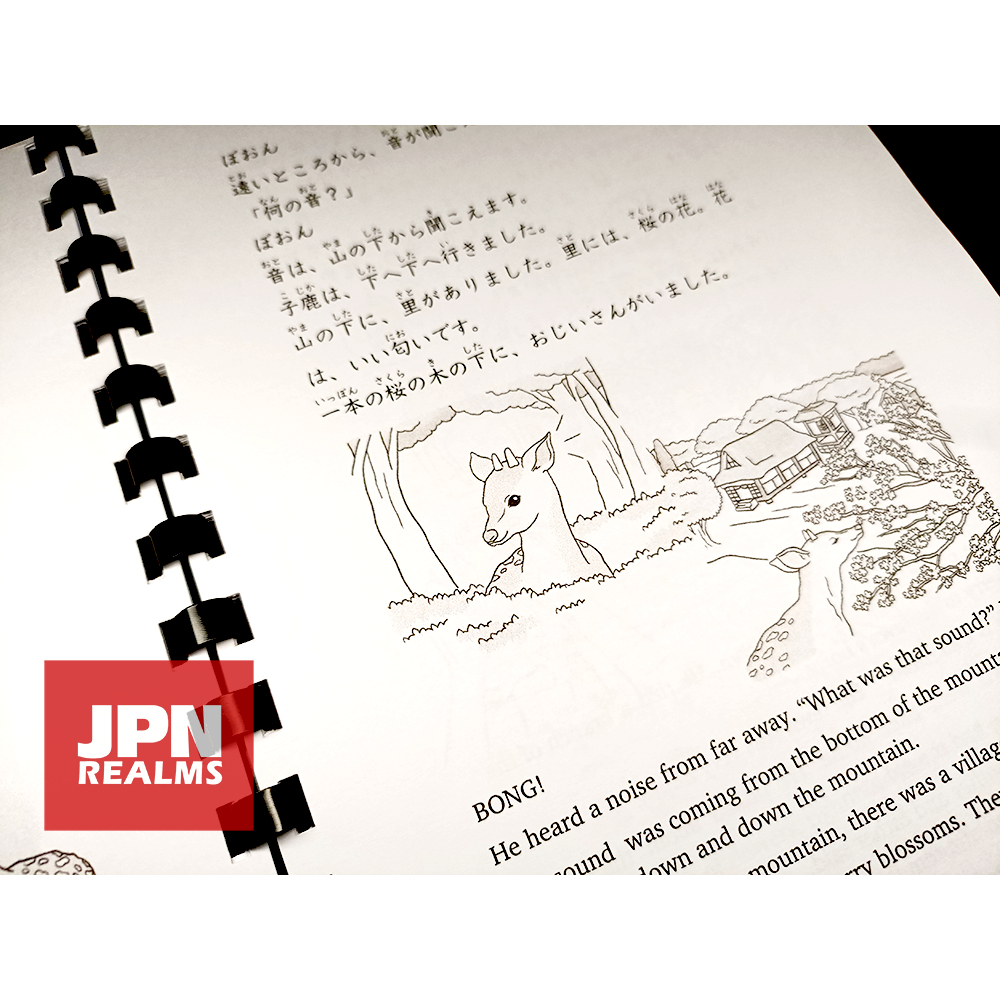 ぼおん
遠いところから、音が聞こえ
「何の音？」
ぼおん
音は、山の下から聞こえます。
子鹿は、下へ下へ行きました。
山の下に、里がありました。里には、桜の花。花
は、いい匂いです。
一本の桜の木の下に、おじいさんがいました。
BONG!
He heard a noise from far away. “What was that sound?”
sound was coming from the bottom of the mounta
down and down the mountain.
mountain, there was a villag
rry blossoms. The
JPN
REALMS